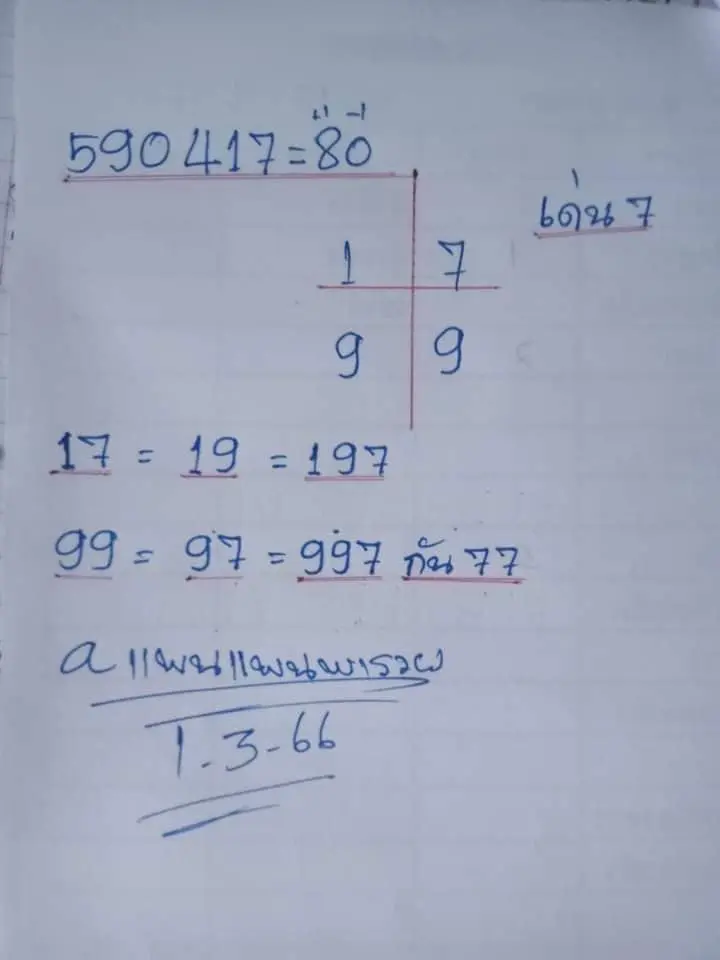 +1 -1
590417=80
เด่น 7
1 7
9 9
17 = 19 = 197
99 = 97 = 997 กัน 77
a แพนแพนพารวย
1.3-66